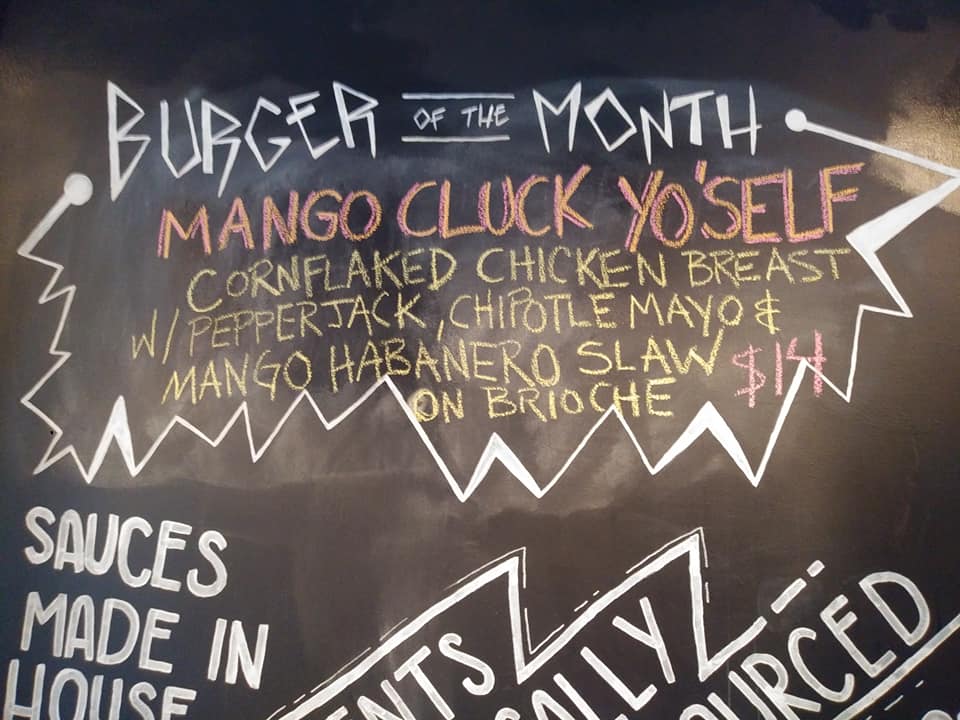 BURGER OF THE MONTH
MANGO CLUCK YO'SELF
CORNFLAKED CHICKEN BREAST
W/ PEPPERJACK, CHIPOTLE MAYO &
MANGO HABANERO SLAW $14
ON BRIOCHE
SAUCES
MADE IN
HOUSE